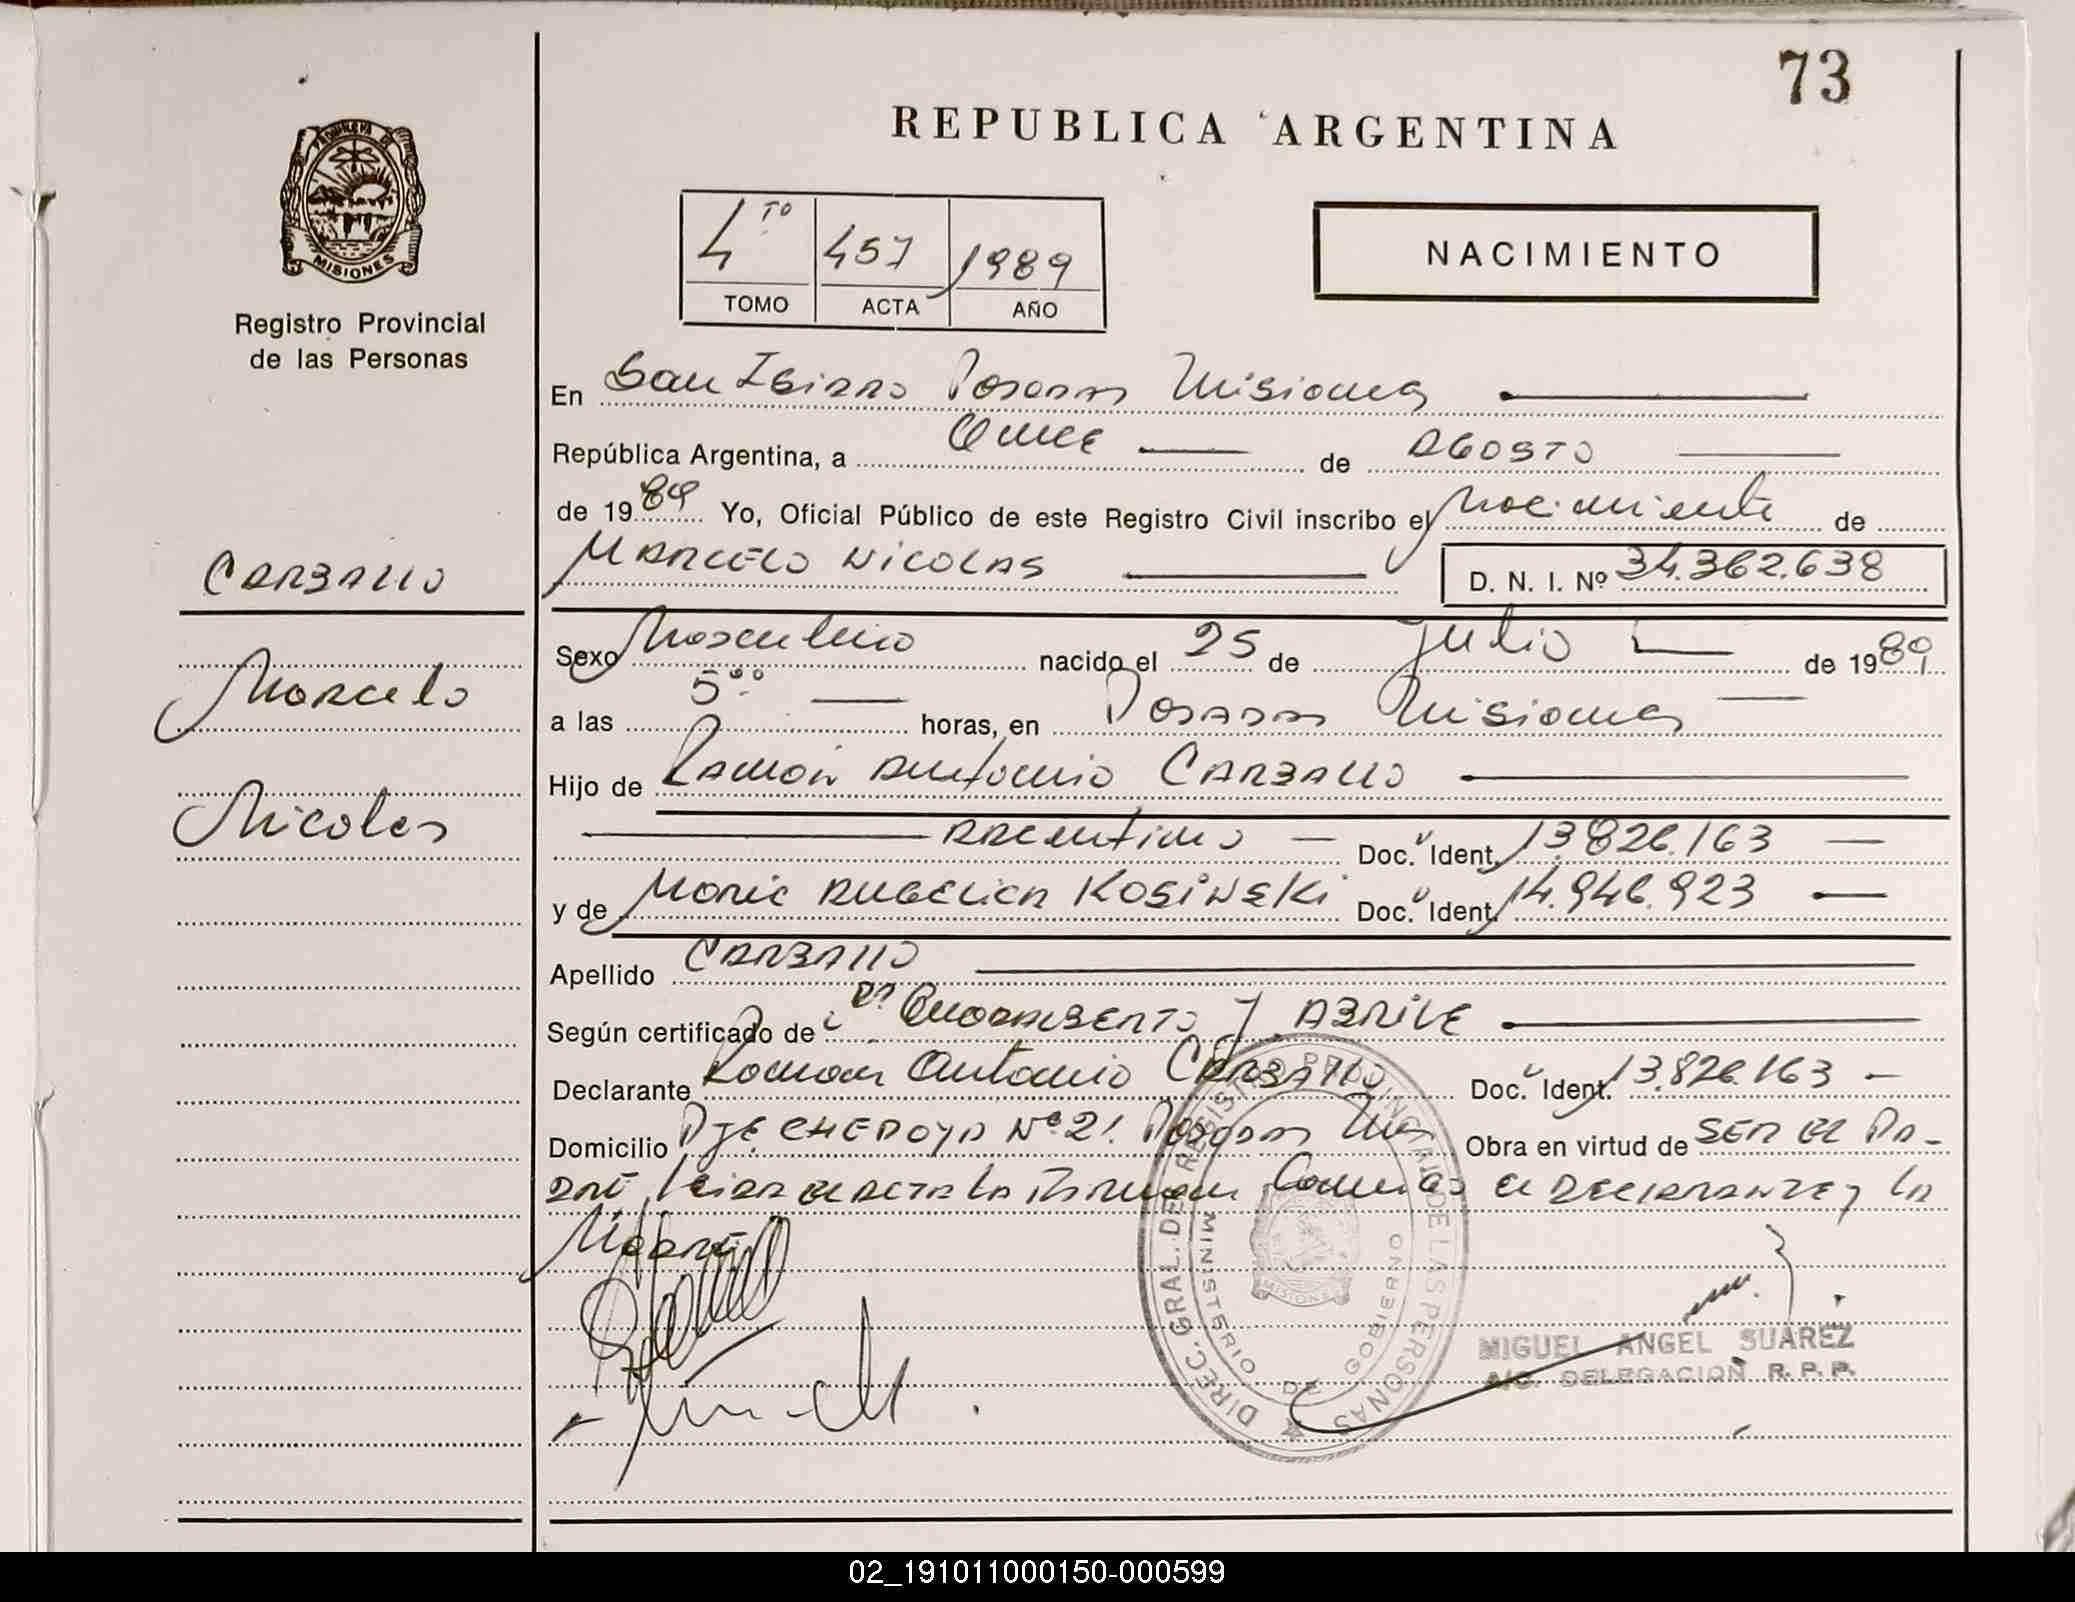 73
REPUBLICA ARGENTINA
PROVINCIA DE
MISIONES
4 TO 457 1989
TOMO ACTA AÑO
NACIMIENTO
Registro Provincial
de las Personas
En San Isidro Posadas Misiones
República Argentina, a Quince de AGOSTO
de 1989 Yo, Oficial Público de este Registro Civil inscribo el Nacimiento de
MARCELO NICOLAS D. N. I. Nº 34.362.638
CARBALLO
Marcelo
Nicolas
Sexo Masculino nacido el 25 de Julio de 1989
a las 5:00 horas, en Posadas Misiones
Hijo de Ramón Antonio CARBALLO
ARGENTINO Doc. Ident. 13.826.163
y de Maria ANGELICA KOSINSKI Doc. Ident. 14.946.923
Apellido CARBALLO
Según certificado de Y ABRILE
Declarante Ramon Antonio CARBALLO Doc. Ident. 13.826.163
Domicilio Nº 21 Posadas Mnes Obra en virtud de SER EL PA-
DRE, leida el acta la firman Conmigo el DECLARANTE y LA
MADRE
DIREC. GRAL. DEL REGISTRO PROVINCIAL DE LAS PERSONAS
MINISTERIO DE GOBIERNO
MISIONES
MIGUEL ANGEL SUAREZ
A/C. DELEGACION R. P. P.
02_191011000150-000599